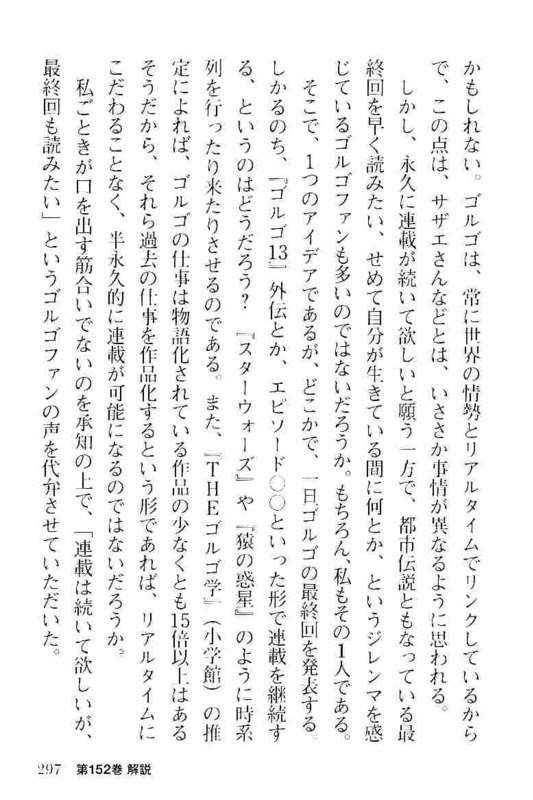 かもしれない。ゴルゴは、常に世界の情勢とリアルタイムでリンクしているから
で、この点は、サザエさんなどとは、いささか事情が異なるように思われる。
しかし、永久に連載が続いて欲しいと願う一方で、都市伝説ともなっている最
終回を早く読みたい、せめて自分が生きている間に何とか、というジレンマを感
じているゴルゴファンも多いのではないだろうか。もちろん、私もその1人である。
そこで、1つのアイデアであるが、どこかで、一旦ゴルゴの最終回を発表する。
しかるのち、『ゴルゴ13』外伝とか、エピソード○○といった形で連載を継続す
る、というのはどうだろう?『スターウォーズ』や『猿の惑星』のように時系
列を行ったり来たりさせるのである。また、『THEゴルゴ学』(小学館)の推
定によれば、ゴルゴの仕事は物語化されている作品の少なくとも15倍以上はある
そうだから、それら過去の仕事を作品化するという形であれば、リアルタイムに
こだわることなく、半永久的に連載が可能になるのではないだろうか。
私ごときが口を出す筋合いでないのを承知の上で、「連載は続いて欲しいが、
最終回も読みたい」というゴルゴファンの声を代弁させていただいた。
297 第152巻 解説